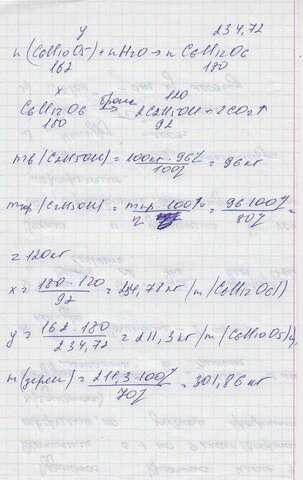 y 234,72
n(C6H10O5)+nH2O→n C6H12O6
162 180
x 120
C6H12O6 брож→ 2C2H5OH+2CO2↑
180 92
mв(C2H5OH)=100кг·96%/100%=96кг
mпр(C2H5OH)=mпр·100%/η=96·100%/80%=
=120кг
x=180·120/92=234,78кг/m(C6H12O6))
y=162·180/234,72=211,3кг/m(C6H10O5)n
m(зерен)=211,3·100%/70%=301,86кг